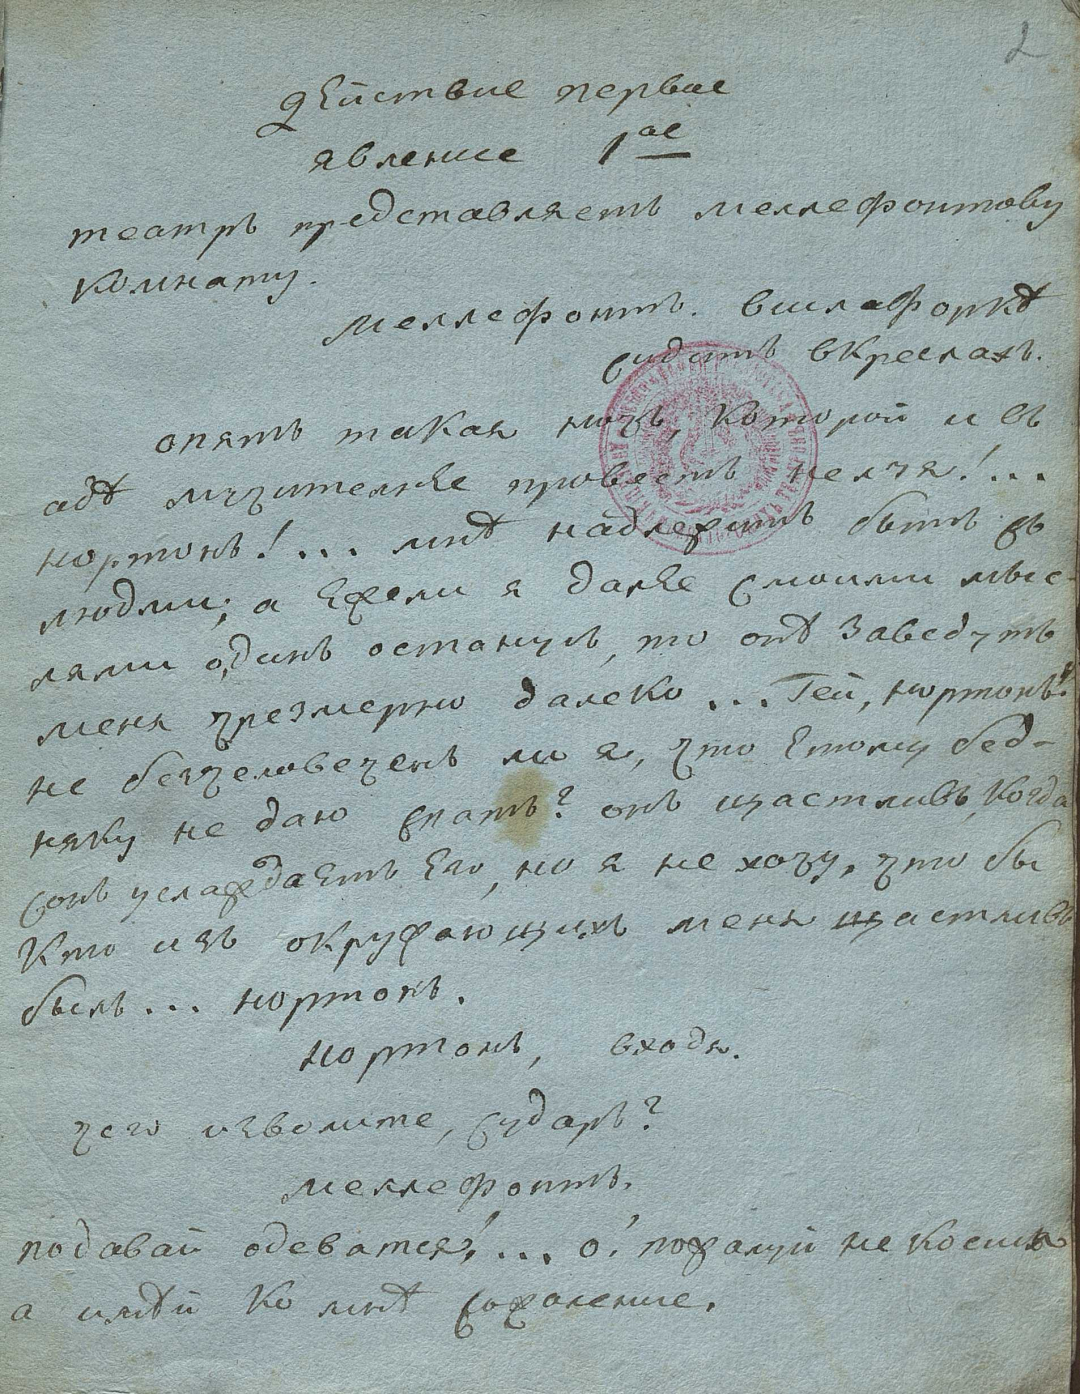 2
Действие первое
явление 1ое
театръ представляетъ меллефонтову
комнату.
меллефонтъ. вшлафоркѣ
сидитъ вкреслахъ.
опять такая ночь, которой и въ
адѣ мучителнѣе провесть нелзя!...
нортонъ!... мнѣ надлежитъ быть въ
людми; а ежели я далѣе смоими мыс-
лями одинъ останусь, то онѣ заведутъ
меня чрезмерно далеко... Гей, нортонъ!
не безчеловеченъ ли я, что етому бед-
няку не даю спать? онъ щастливъ, когда
сонъ услаждаетъ его, но я не хочу, что бы
кто изъ окружающихъ меня щастливъ
былъ... нортонъ.
нортонъ, входя.
чего изволите, сударь?
меллефонтъ.
подавай одеватся!... о! пожалуй не косись
а имѣй ко мнѣ сожаление.